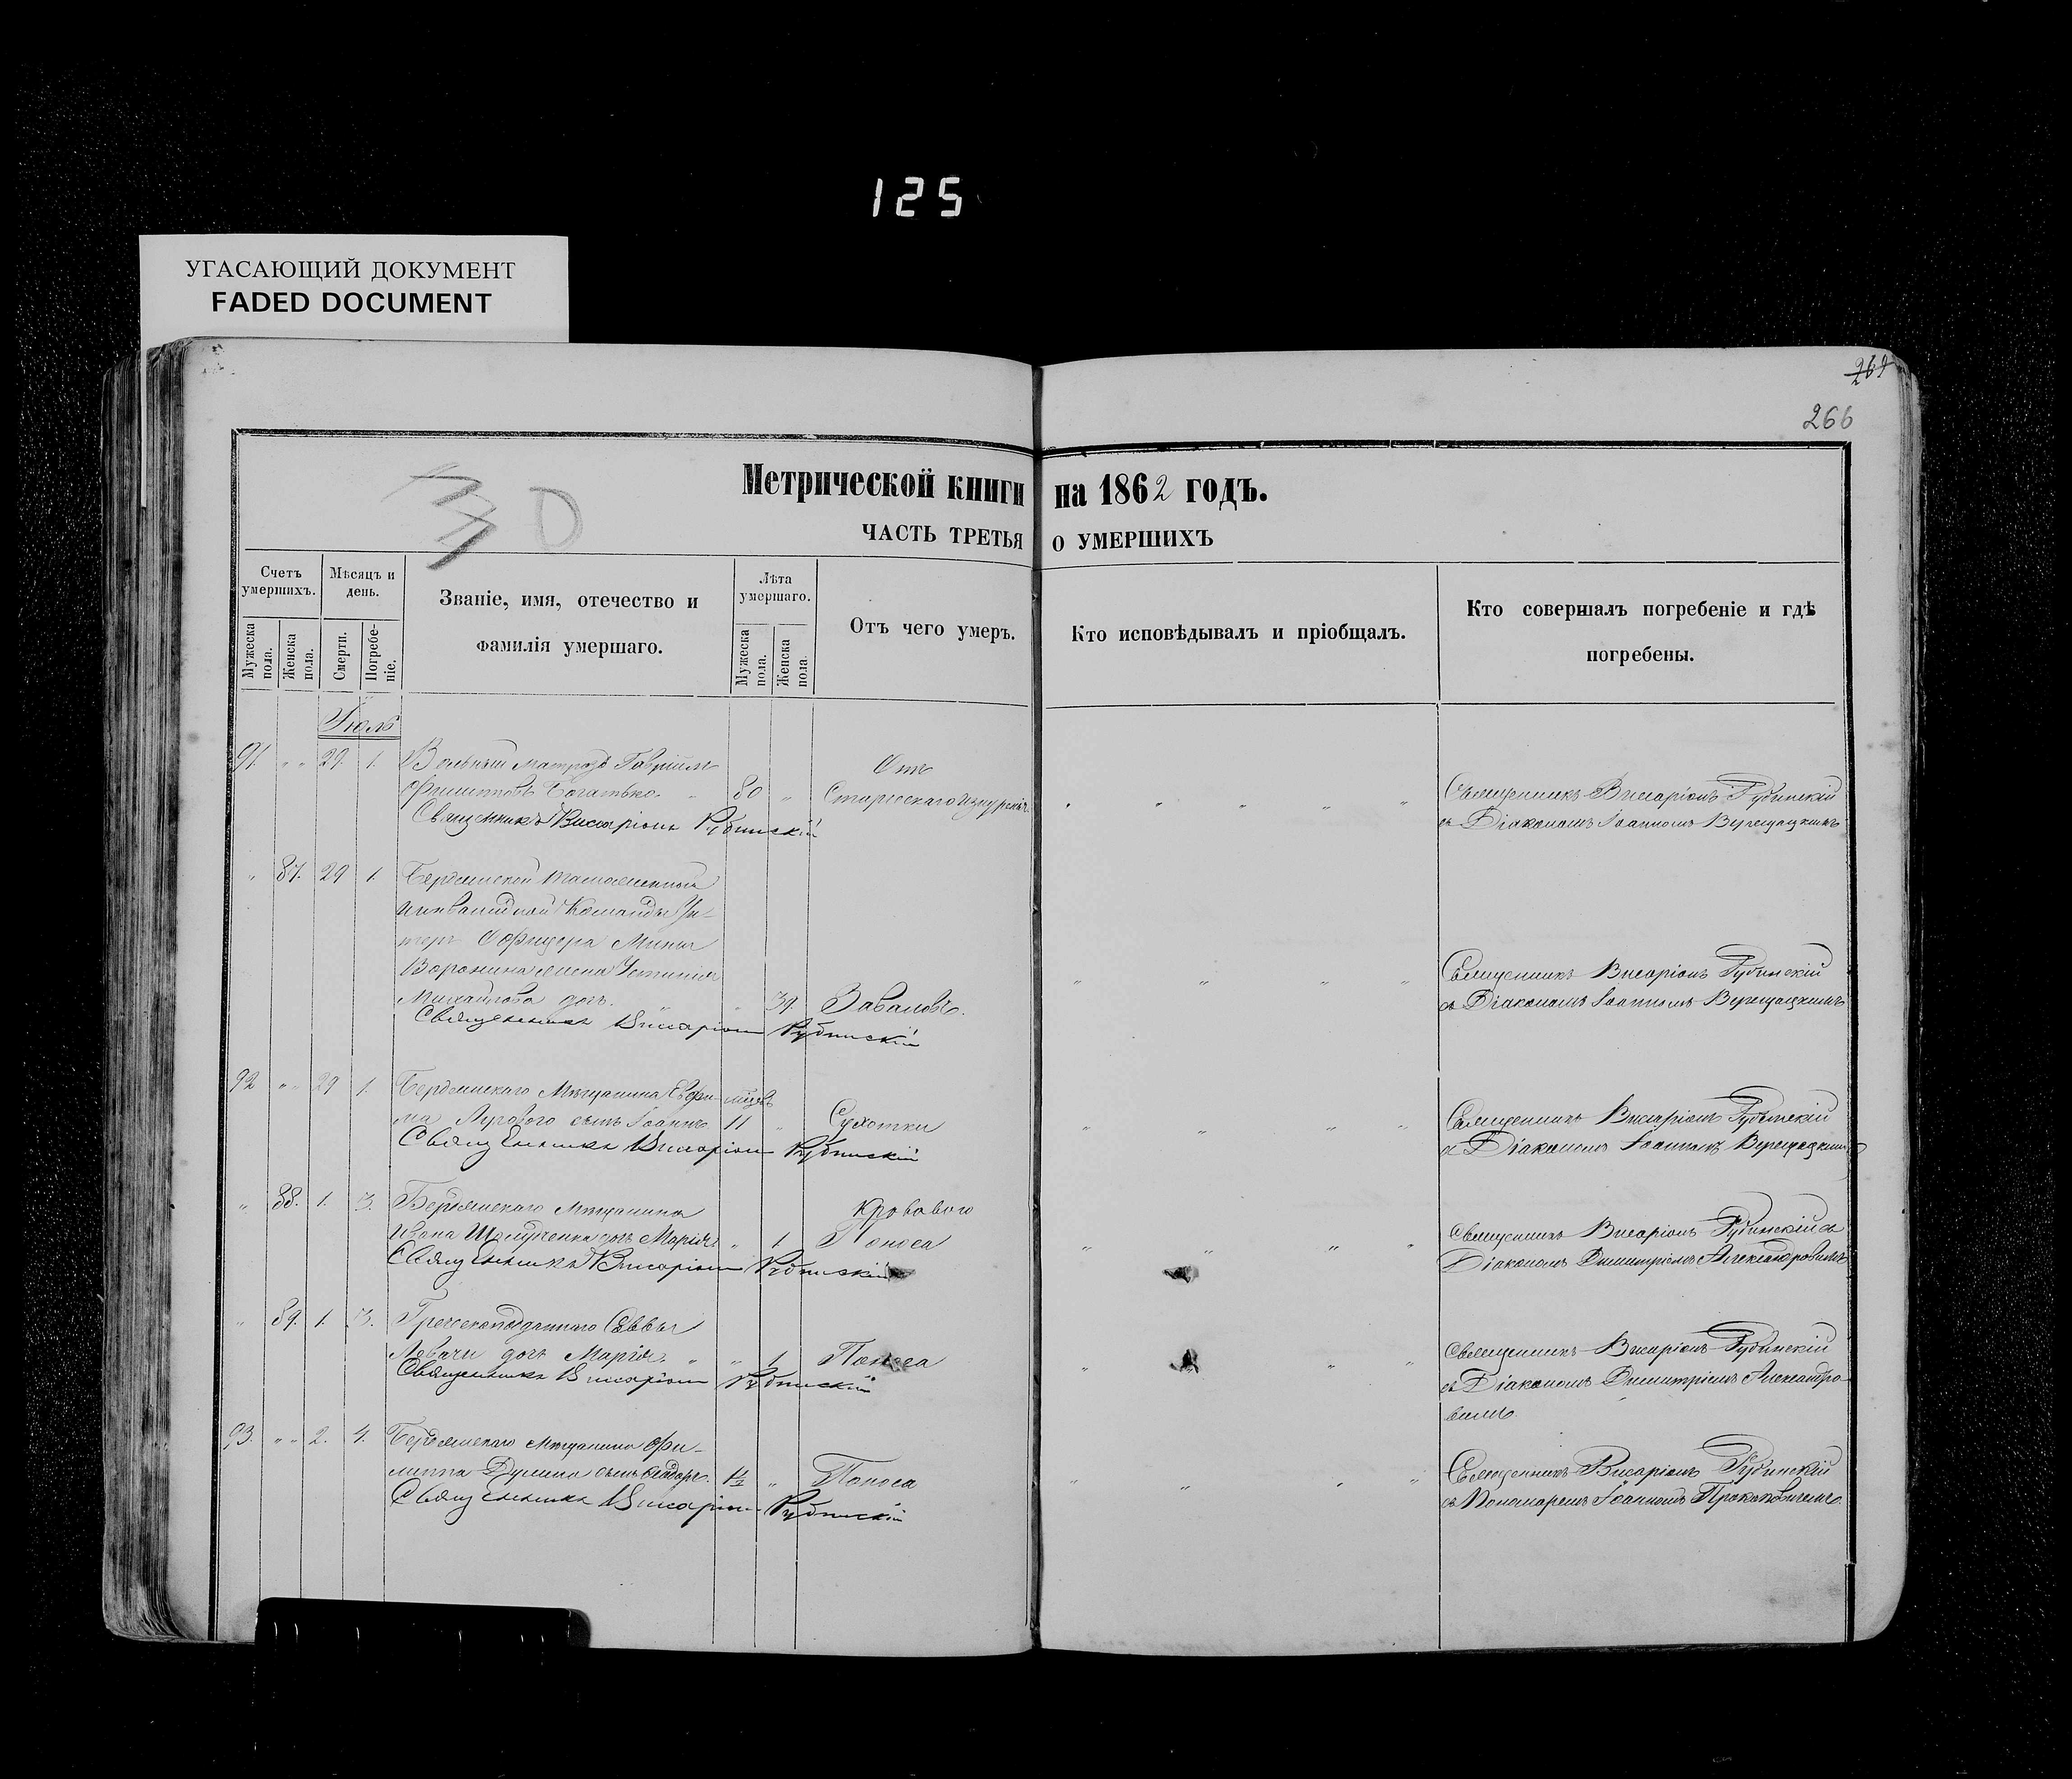 125
УГАСАЮЩИЙ ДОКУМЕНТ
FADED DOCUMENT
269
266
30
Метрической книги на 1862 годъ.
ЧАСТЬ ТРЕТЬЯ О УМЕРШИХЪ
Счетъ умершихъ.
Мѣсяцъ и день.
Званіе, имя, отечество и фамилія умершаго.
Лѣта умершаго.
Отъ чего умеръ.
Кто исповѣдывалъ и пріобщалъ.
Кто совершалъ погребеніе и гдѣ погребены.
Мужеска пола.
Женска пола.
Смерти.
Погребеніе.
Мужеска пола.
Женска пола.
Іюль
91. " " 29. 1. Вольный матрозъ Гавріилъ Отъ
Филипповъ Богатько 80 " Старческаго изнуренія " " " " " Священникъ Висаріонъ Рубинскій
Священникъ Виссаріонъ Рубинскій съ Діакономъ Іоанномъ Верещацкимъ
" 87. 29 1. Бердянской таможенной
инвалидной Команды Ун-
теръ Офицера Мины
Воронина жена Устинія Священникъ Висаріонъ Рубинскій
Михайлова дочь. " 39. Заваловъ. " " " " съ Діакономъ Іоанномъ Верещацкимъ
Священникъ Виссаріонъ Рубинскій
92 " " 29 1. Бердянскаго Мѣщанина Евфи- мѣсяц.
ма Лугового сынъ Іоаннъ 11 " Сухотки " " " " Священникъ Висаріонъ Рубинскій
Священникъ Виссаріонъ Рубинскій съ Діакономъ Іоанномъ Верещацкимъ
" 88. 1. 3. Бердянскаго Мѣщанина Кроваваго
Ивана дочь Марія " 1 Поноса " " " " Священникъ Висаріонъ Рубинскій съ
Священникъ Виссаріонъ Рубинскій Діакономъ Димитріемъ Александровымъ
" 89. 1. 3. Греческоподданнаго Саввы
Левачи дочь Марія. " " 1 Поноса " " " " Священникъ Висаріонъ Рубинскій
Священникъ Виссаріонъ Рубинскій съ Діакономъ Димитріемъ Александро-
вымъ
93. " " 2. 4. Бердянскаго Мѣщанина Фи-
липпа сынъ Ѳеодоръ. 1/2 " Поноса " " " " Священникъ Висаріонъ Рубинскій
Священникъ Виссаріонъ Рубинскій съ Пономаремъ Іоанномъ Прокоповичемъ